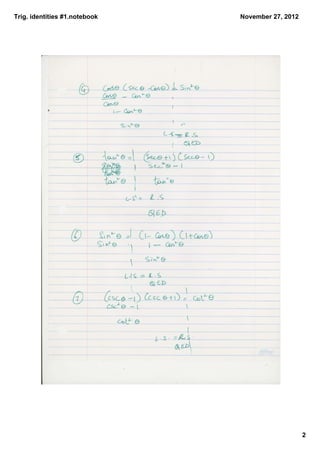 Trig. identities #1.notebook
November 27, 2012
④ Cosθ (secθ - Cosθ) = Sin²θ
Cosθ - Cos²θ
Cosθ
1 - Cos²θ
Sin²θ
L.S = R.S.
QED
⑤ tan²θ = (Secθ+1)(Secθ-1)
Sec²θ - 1
tan²θ tan²θ
L.S = R.S
QED
⑥ Sin²θ = (1 - Cosθ)(1+Cosθ)
Sin²θ 1 - Cos²θ
Sin²θ
L.S = R.S
QED
⑦ (cscθ - 1)(cscθ + 1) = cot²θ
csc²θ - 1
cot²θ
L.S. = R.S
QED
2